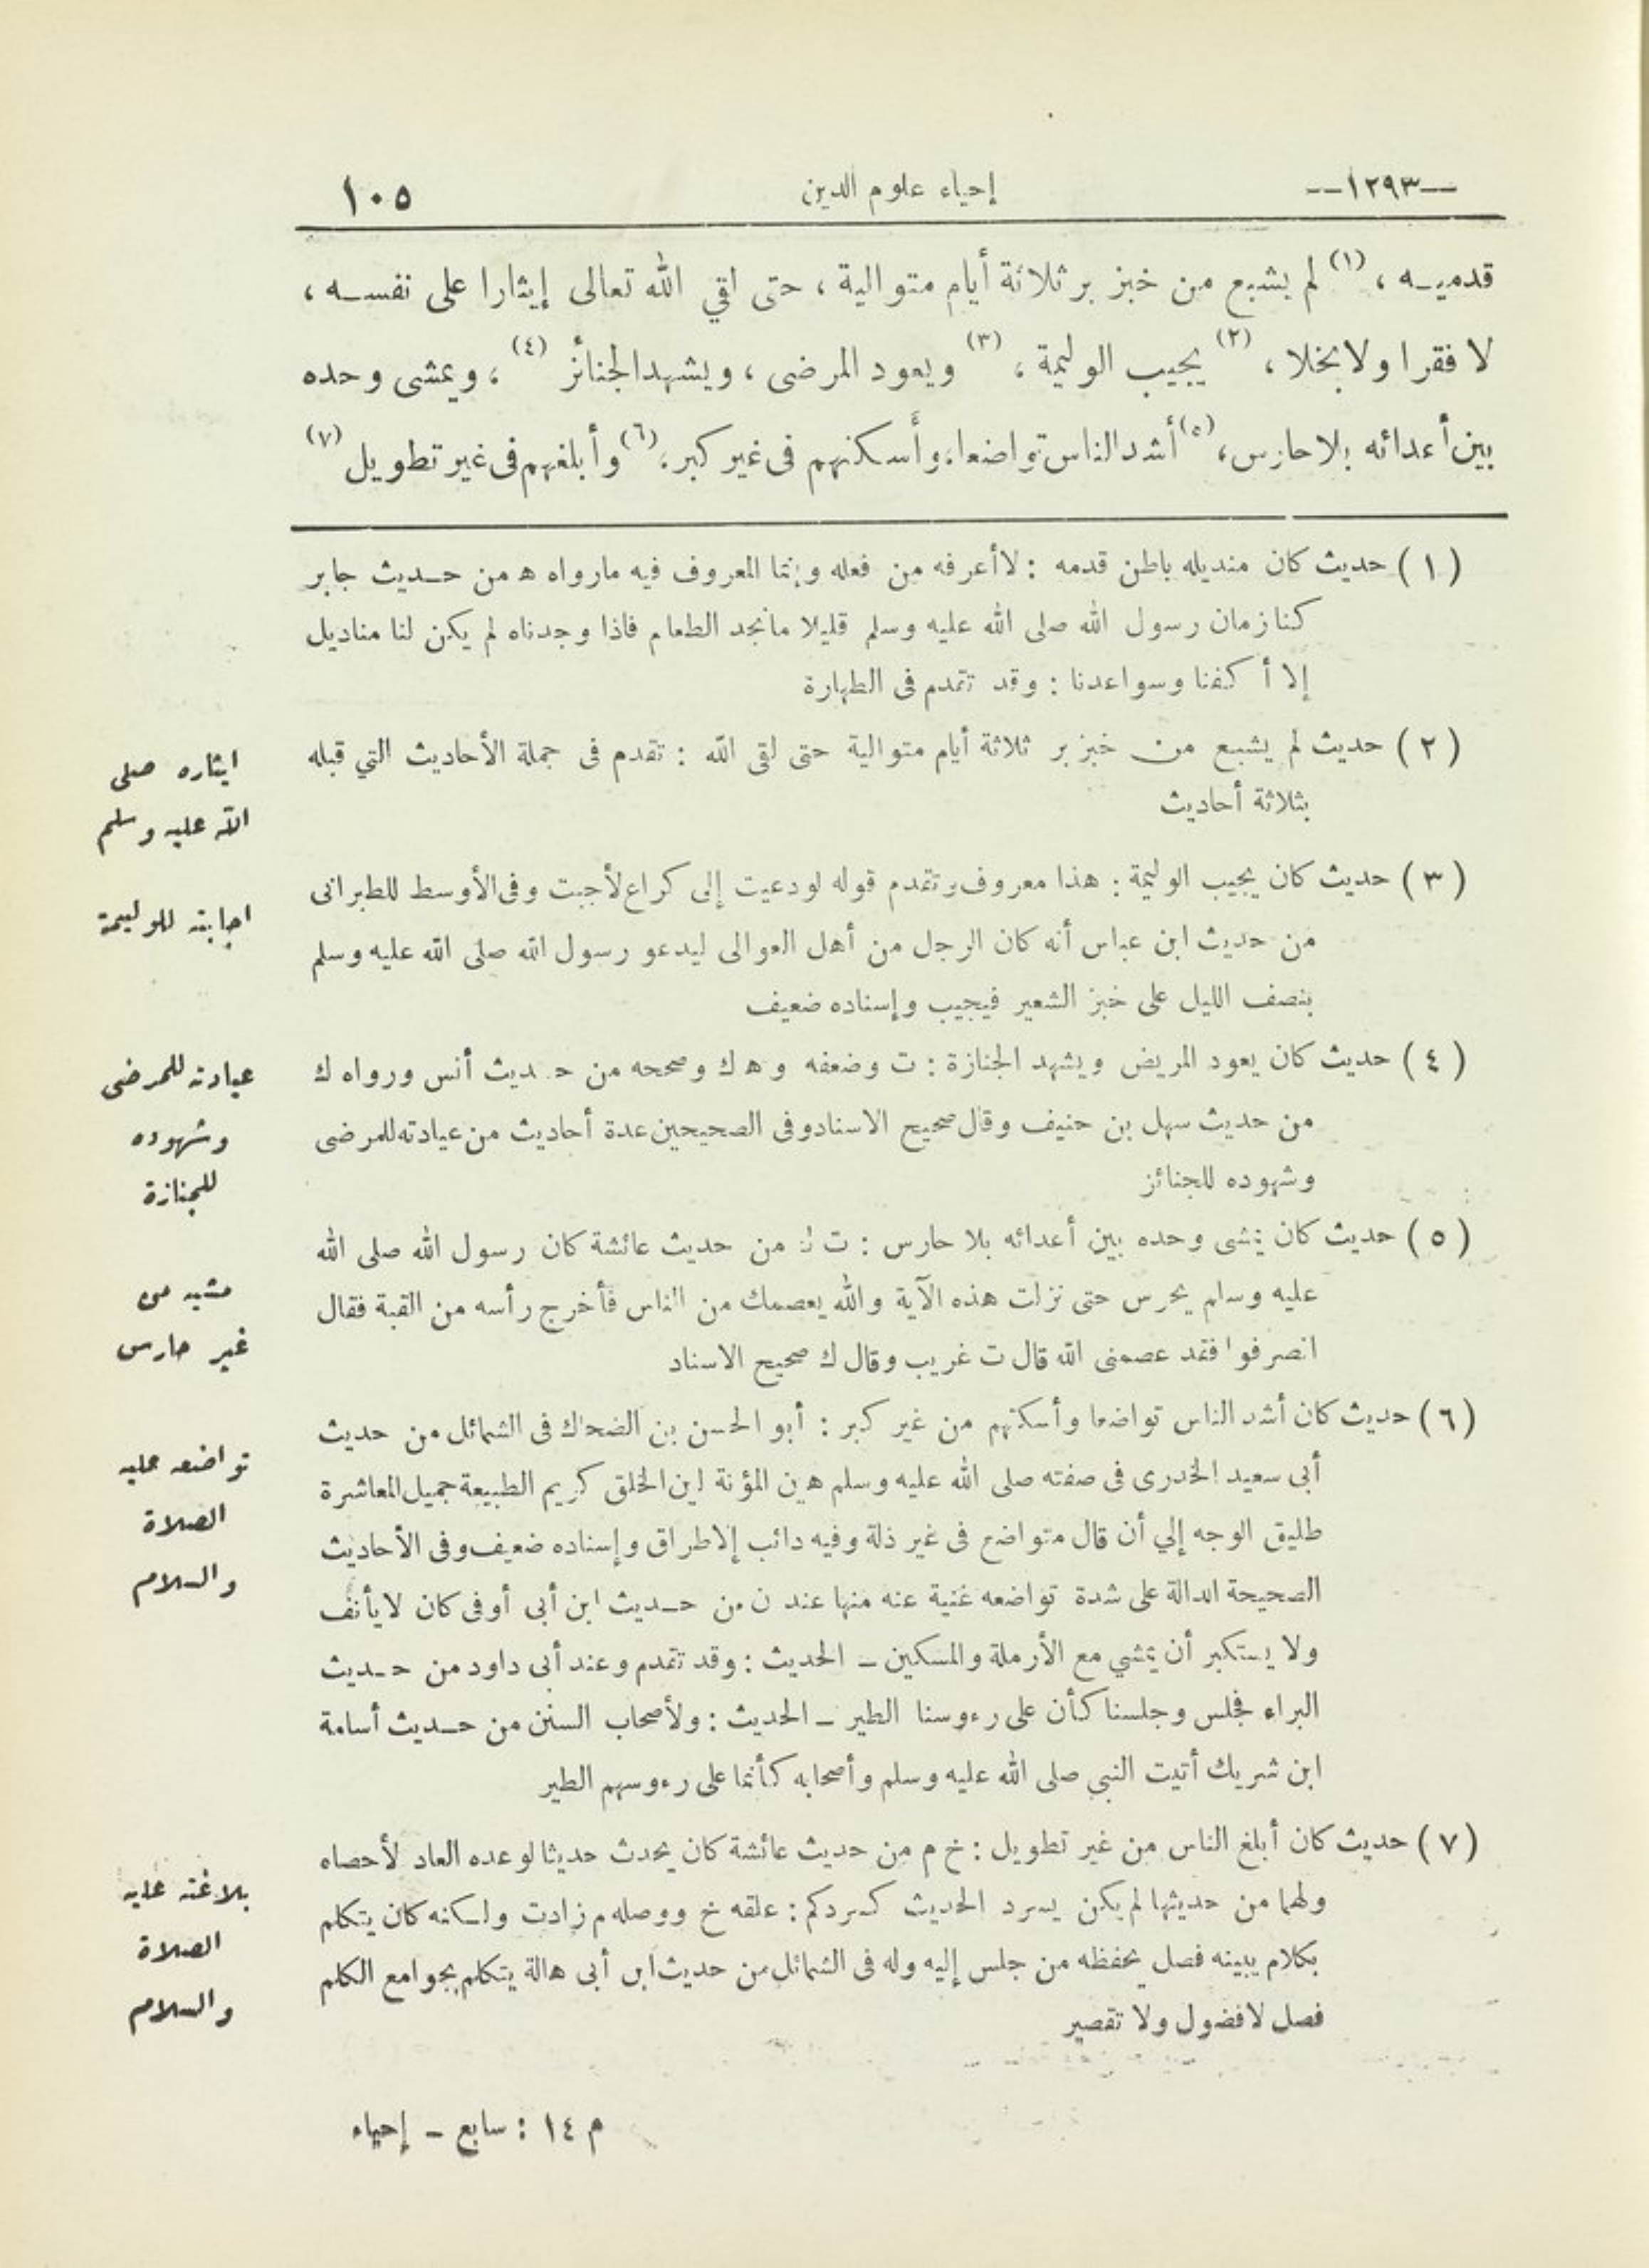 —١٢٩٣—
إحياء علوم الدين
١٠٥
قدميـه ، (١) لم يشبع من خبز بر ثلاثة أيام متوالية ، حتى لقي الله تعالى إيثارا على نفسـه ،
لا فقرا ولا بخلا ، (٢) يجيب الوليمة ، (٣) ويعود المرضى ، ويشهد الجنائز (٤) ، ويمشى وحده
بين أعدائه بلا حارس ، (٥) أشد الناس تواضعا، وأسكنهم فى غير كبر، (٦) وأبلغهم فى غير تطويل (٧)
( ١ ) حديث كان منديله باطن قدمه : لا أعرفه من فعله وإنما المعروف فيه مارواه ه من حـديث جابر
كنا زمان رسول الله صلى الله عليه وسلم قليلا مانجد الطعام فاذا وجدناه لم يكن لنا مناديل
إلا أكفنا وسواعدنا : وقد تقدم فى الطهارة
( ٢ ) حديث لم يشبع من خبز بر ثلاثة أيام متوالية حتى لقى الله : تقدم فى جملة الأحاديث التي قبله
بثلاثة أحاديث
( ٣ ) حديث كان يجيب الوليمة : هذا معروف وتقدم قوله لو دعيت إلى كراع لأجبت وفى الأوسط للطبرانى
من حديث ابن عباس أنه كان الرجل من أهل العوالى ليدعو رسول الله صلى الله عليه وسلم
بنصف الليل على خبز الشعير فيجيب وإسناده ضعيف
( ٤ ) حديث كان يعود المريض ويشهد الجنازة : ت وضعفه و ه ك وصححه من حـديث أنس ورواه ك
من حديث سهل بن حنيف وقال صحيح الاسناد وفى الصحيحين عدة أحاديث من عيادته للمرضى
وشهوده للجنائز
( ٥ ) حديث كان يمشى وحده بين أعدائه بلا حارس : ت ك من حديث عائشة كان رسول الله صلى الله
عليه وسلم يحرس حتى نزلت هذه الآية والله يعصمك من الناس فأخرج رأسه من القبة فقال
انصرفوا فقد عصمنى الله قال ت غريب وقال ك صحيح الاسناد
( ٦ ) حديث كان أشد الناس تواضعا وأسكنهم من غير كبر : أبو الحسن بن الضحاك فى الشمائل من حديث
أبى سعيد الخدرى فى صفته صلى الله عليه وسلم هين المؤنة لين الخلق كريم الطبيعة جميل المعاشرة
طليق الوجه إلي أن قال متواضع فى غير ذلة وفيه دائب الاطراق وإسناده ضعيف وفى الأحاديث
الصحيحة الدالة على شدة تواضعه غنية عنه منها عند ن من حـديث ابن أبى أوفى كان لا يأنف
ولا يستكبر أن يمشي مع الأرملة والمسكين ــ الحديث : وقد تقدم وعند أبى داود من حـديث
البراء فجلس وجلسنا كأن على رءوسنا الطير ــ الحديث : ولأصحاب السنن من حـديث أسامة
ابن شريك أتيت النبى صلى الله عليه وسلم وأصحابه كأنما على رءوسهم الطير
( ٧ ) حديث كان أبلغ الناس من غير تطويل : خ م من حديث عائشة كان يحدث حديثا لو عده العاد لأحصاه
ولهما من حديثها لم يكن يسرد الحديث كسردكم : علقه خ ووصله م زادت ولـكنه كان يتكلم
بكلام يبينه فصل يحفظه من جلس إليه وله فى الشمائل من حديث ابن أبى هالة يتكلم بجوامع الكلم
فصل لا فضول ولا تقصير
ايثاره صلى
الله عليه وسلم
اجابته للوليمة
عيادته للمرضى
وشهوده
للجنازة
مشيه من
غير حارس
تواضعه عليه
الصلاة
والسلام
بلاغته عليه
الصلاة
والسلام
م ١٤ : سابع ــ إحياء